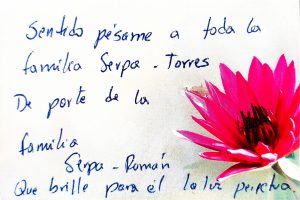 Sentido pésame a toda la
familia Serpa - Torres
De parte de la
familia
Serpa - Román
Que brille para él la luz perpetua